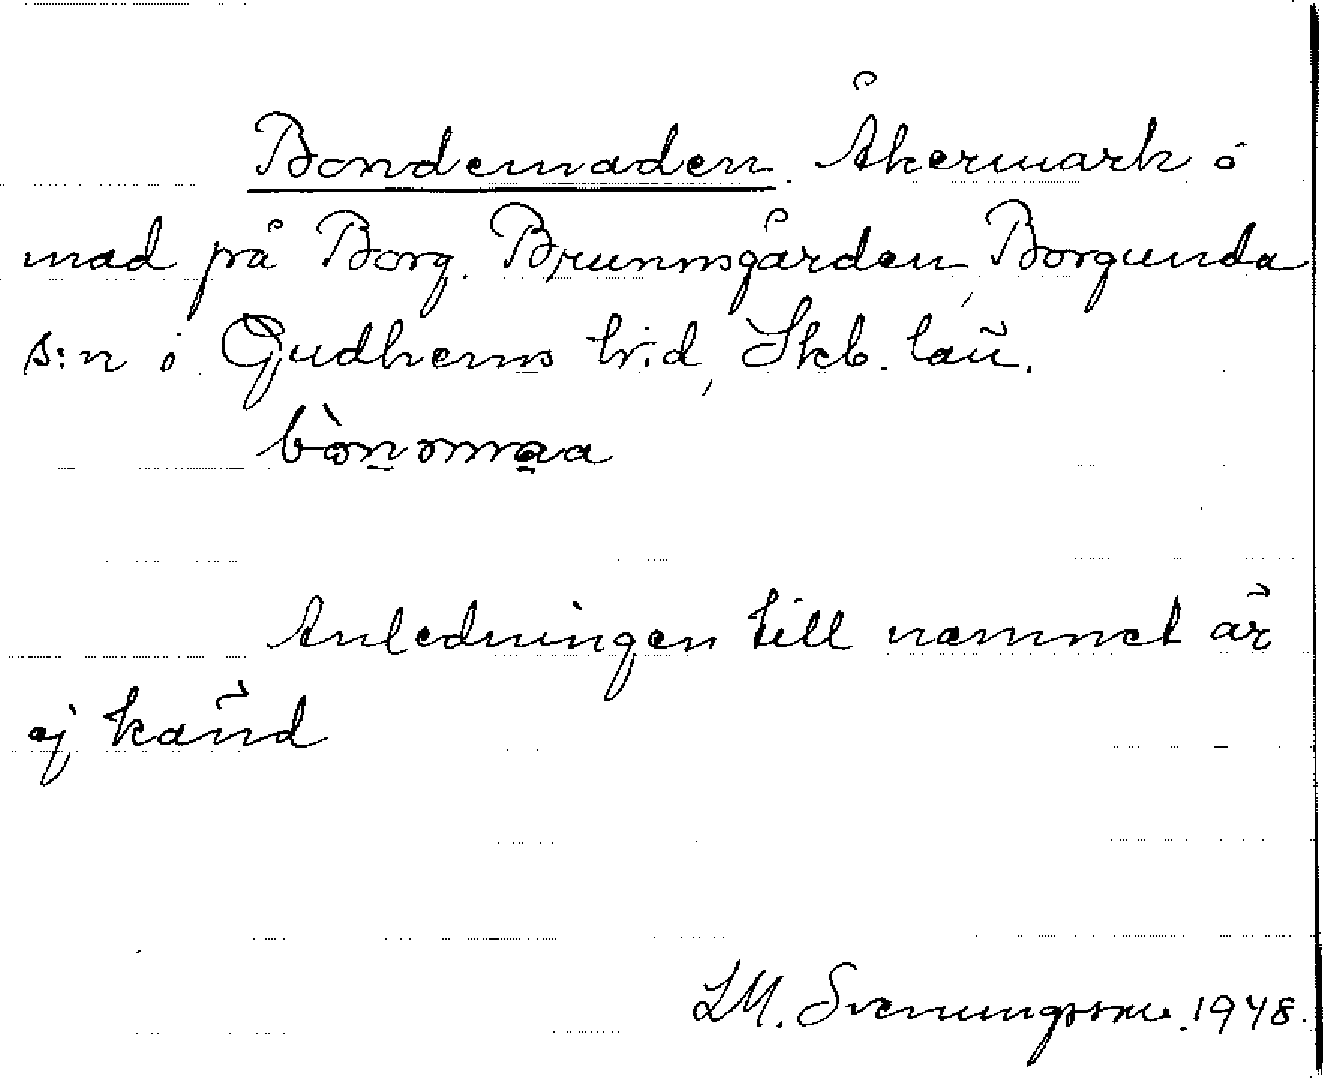 Bondemaden. Åkermark i
mad på Borg. Brunnsgården, Borgunda
s:n i Gudhems h:d, Skb. län.
Anledningen till namnet är
ej känd
LM. Svenungsson. 1948.